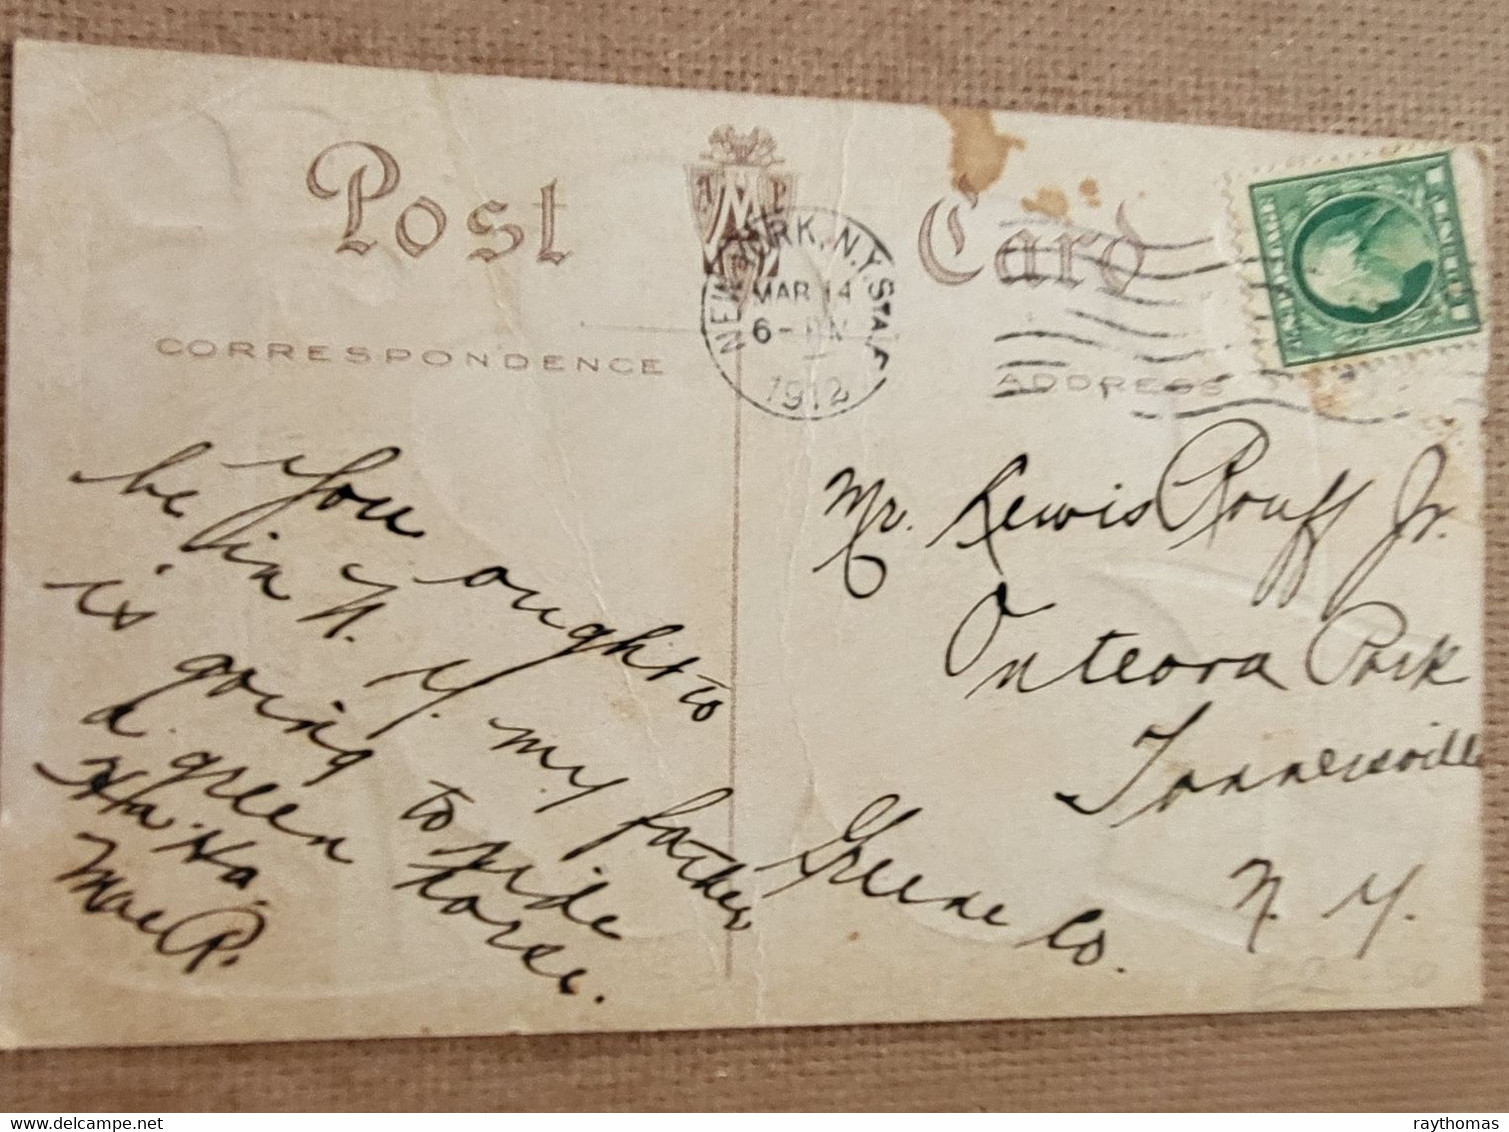 Post Card
CORRESPONDENCE
ADDRESS
NEW YORK, N.Y. STA. F
MAR 14
6-PM
1912
You ought to
be in N. Y. my father
is going to ride
a green horse.
Ha. Ha.
Mae P.
Mr. Lewis Rouff Jr.
Onteora Park
Tannersville
Greene Co.
N. Y.
delcampe.net
raythomas